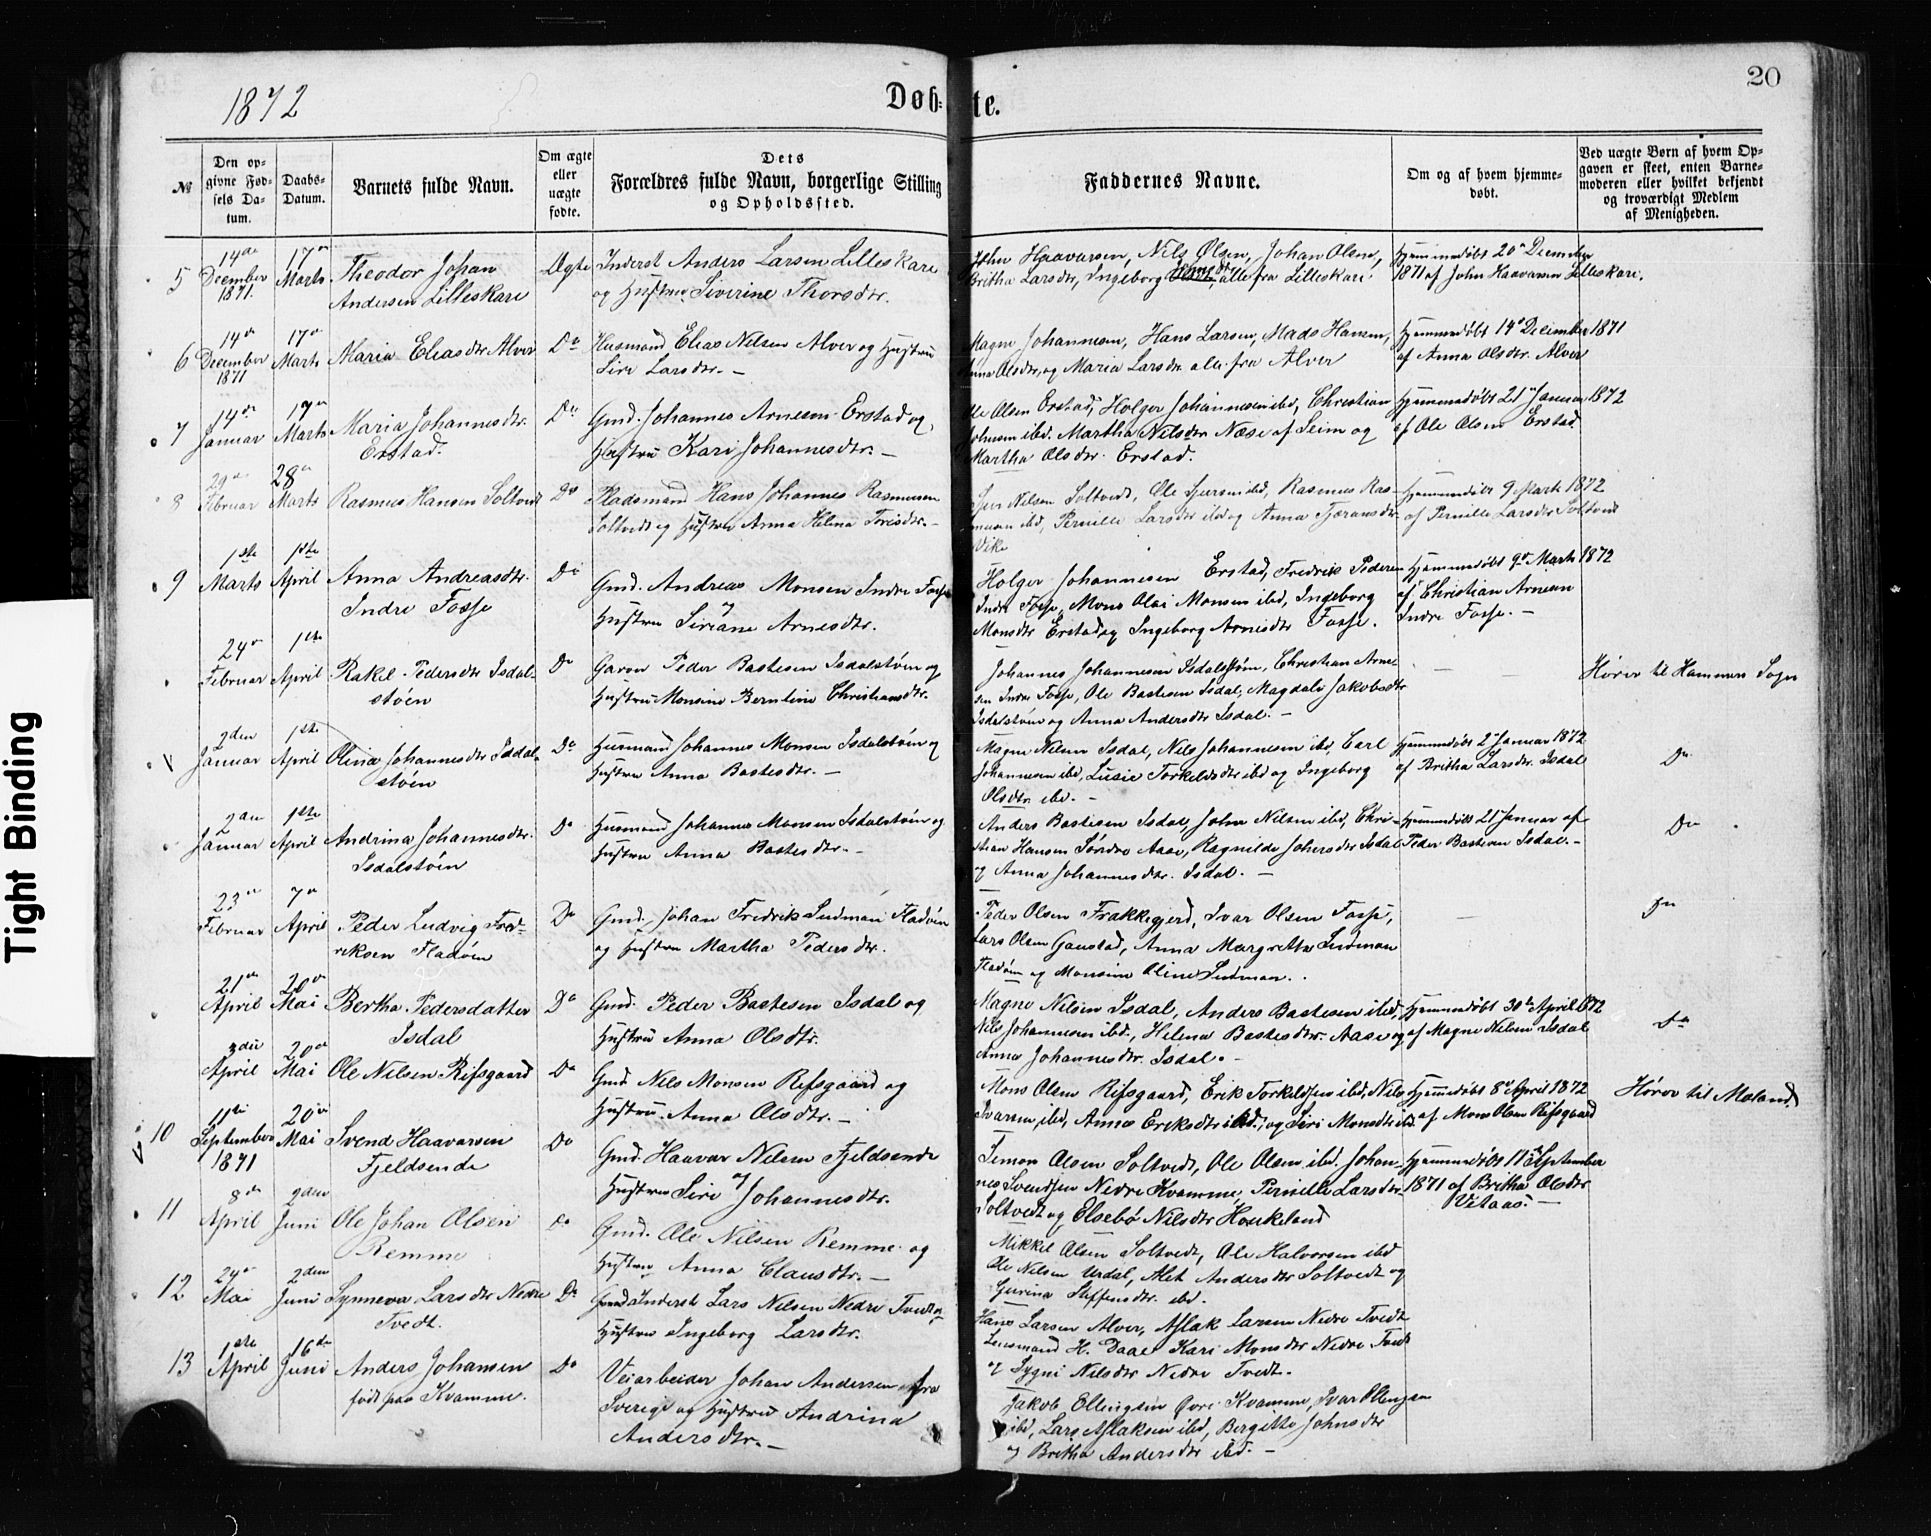 1872
Døb-
te.
20
№
Den op-
givne Fød-
sels Da-
tum.
Daabs-
Datum.
Barnets fulde Navn.
Om ægte
eller
uægte
fødte.
Dets
Forældres fulde Navn, borgerlige Stilling
og Opholdssted.
Faddernes Navne.
Om og af hvem hjemme-
døbt.
Ved uægte Børn af hvem Op-
gaven er skeet, enten Barne-
moderen eller hvilket bekjendt
og troværdigt Medlem
af Menigheden.
5
14de
December
1871.
17de
Marts
Theodor Johan
Andersen Lilleskare
Ægte
Inderst Anders Larsen Lilleskare
og Hustru Siverine Thorsdtr.
John Haavarsen, Nils Olsen, Johan Olsen,
Britha Larsdtr, Ingeborg alle fra Lilleskare
Hjemmedøbt 20de December
1871 af John Haavarsen Lilleskare.
6
14de
December
1871
17de
Marts
Maria Eliasdtr Alver
Do
Husmand Elias Nilsen Alver og Hustru
Siri Larsdtr. –
Magne Johannesen, Hans Larsen, Mads Hansen,
Anna Olsdtr, og Maria Larsdtr alle fra Alver
Hjemmedøbt 14de December 1871
af Anna Olsdtr. Alver
7
14de
Januar
17de
Marts
Maria Johannesdtr.
Erstad.
Do
Gmd. Johannes Arnesen Erstad og
Hustru Kari Johannesdtr. –
Ole Olsen Erstad, Holger Johannesen ibd, Christian
Johnsen ibd. Martha Nilsdtr Næse af Seim og
Martha Olsdtr. Erstad.
Hjemmedøbt 21de Januar 1872
af Ole Olsen Erstad.
8
29de
Februar
28de
Marts
Rasmus Hansen Soltvedt
Do
Pladsmand Hans Johannes Rasmussen
Soltvedt og Hustru Anna Helena Friisdtr. –
Sjur Nilsen Soltvedt, Ole Sjursen ibd, Rasmus Ras-
musen ibd, Pernille Larsdtr ibd og Anna Tjæransdtr
Vike
Hjemmedøbt 9 Marts 1872
af Pernille Larsdtr Soltvedt
9
1ste
Marts
1ste
April
Anna Andreasdtr.
Indre Fosse
Do
Gmd. Andreas Monsen Indre Fosse
Hustru Siriane Arnesdtr.
Holger Johannesen Erstad, Fredrik Pedersen
Indre Fosse, Mons Olai Monsen ibd, Ingeborg
Monsdtr Erstad og Ingeborg Arnesdtr Fosse.
Hjemmedøbt 9de Marts 1872
af Christian Arnesen
Indre Fosse. –
24de
Februar
1ste
April
Rakel Pedersdtr Isdal-
støen
Do
Garver Peder Bastesen Isdalstøen og
Hustru Monsine Berntine Christiansdtr.
Johannes Johannesen Isdalstøen, Christian Arne-
sen Indre Fosse, Ole Bastesen Isdal, Magdali Jakobsdtr
Isdalstøen og Anna Andersdtr Isdal. –
Hører til Hammers Sogn
2den
Januar
1ste
April
Olina Johannesdtr Isdal-
støen
Do
Husmand Johannes Monsen Isdalstøen og
Hustru Anna Bastesdtr. –
Magne Nilsen Isdal, Nils Johannesen ibd, Carl
Johannesen ibd, Lusie Torkelsdtr ibd og Ingeborg
Olsdtr. ibd. –
Hjemmedøbt 2den Januar 1872
af Britha Larsdtr. Isdal
Do
2den
Januar
1ste
April
Andrina Johannesdtr.
Isdalstøen
Do
Husmand Johannes Monsen Isdalstøen og
Hustru Anna Bastesdtr. –
Anders Bastesen Isdal, John Nilsen ibd, Chri-
stian Hansen Søndre Aase, Ragnilde Johnsdtr Isdal
og Anna Johannesdtr. Isdal. –
Hjemmedøbt 2den Januar af
Peder Bastesen Isdal. –
Do
23de
Februar
7de
April
Peder Ludvig Fred-
riksen Fladøen
Do
Gmd. Johan Fredrik Ludman Fladøen
og Hustru Martha Pedersdtr.
Peder Olsen Frakkegjerd, Ivar Olsen Fosse,
Lars Olsen Gaustad, Anna Margrethe Ludman
Fladøen og Monsine Oline Ludman.
Do
21de
April
20de
Mai
Bertha Pedersdatter
Isdal
Do
Gmd. Peder Bastesen Isdal og
Hustru Anna Olsdtr.
Magne Nilsen Isdal, Anders Bastesen ibd,
Nils Johannesen ibd, Helena Bastesdtr. Aase og
Anna Johannesdtr. Isdal. –
Hjemmedøbt 30te April 1872
af Magne Nilsen Isdal
Do
3die
April
20de
Mai
Ole Nilsen Rifsgaard
Do
Gmd. Nils Monsen Refsgaard og
Hustru Anna Olsdtr. –
Mons Olsen Rifsgaard, Erik Torkildsen ibd, Nils
Ivarsen, ibd, Anna Eriksdtr ibd, og Siri Monsdtr ibd
Hjemmedøbt 8de April 1872
af Mons Olsen Rifsgaard
Hører til Moland.
10
11te
September
1871
20de
Mai
Svend Haavarsen
Fjeldsende
Do
Gmd. Haavar Nilsen Fjeldsende
Hustru Siri Johannesdtr.
Simon Olsen Soltvedt, Ole Olsen ibd. Johan-
nes Svendsen Nedre Kvamme, Pernille Larsdtr.
Soltvedt og Elsebø Nilsdtr Haukeland
Hjemmedøbt 11te September
1871 af Britha Olsdtr
Vitaas. –
11
8de
April
2den
Juni
Ole Johan Olsen
Remme
Do
Gmd. Ole Nilsen Remme og
Hustru Anna Clausdtr. –
Mikkel Olsen Soltvedt, Ole Halvorsen ibd
Ole Nilsen Urdal, Alet Andersdtr Soltvedt og
Gurina Steffensdtr. ibd.
12
24de
Mai
2den
Juni
Synneva Larsdtr Nedre
Tvedt.
Do
Inderst Lars Nilsen Nedre Tvedt og
Hustru Ingeborg Larsdtr.
Hans Larsen Alver, Aslak Larsen Nedre Tvedt
Lensmand H. Daae Kari Monsdtr Nedre Tvedt
og Sygni Nilsdtr Nedre Tvedt.
13
1ste
April
16de
Juni
Anders Johansen
født paa Kvamme.
Do
Veiarbeider Johan Andersen fra
Sverige og Hustru Andrina
Andersdtr. –
Jakob Ellingsen Øvre Kvamme, Ivar Ellingsen
ibd, Lars Aslaksen ibd, Bergitte Johnsdtr
og Britha Andersdtr ibd. –
Tight Binding